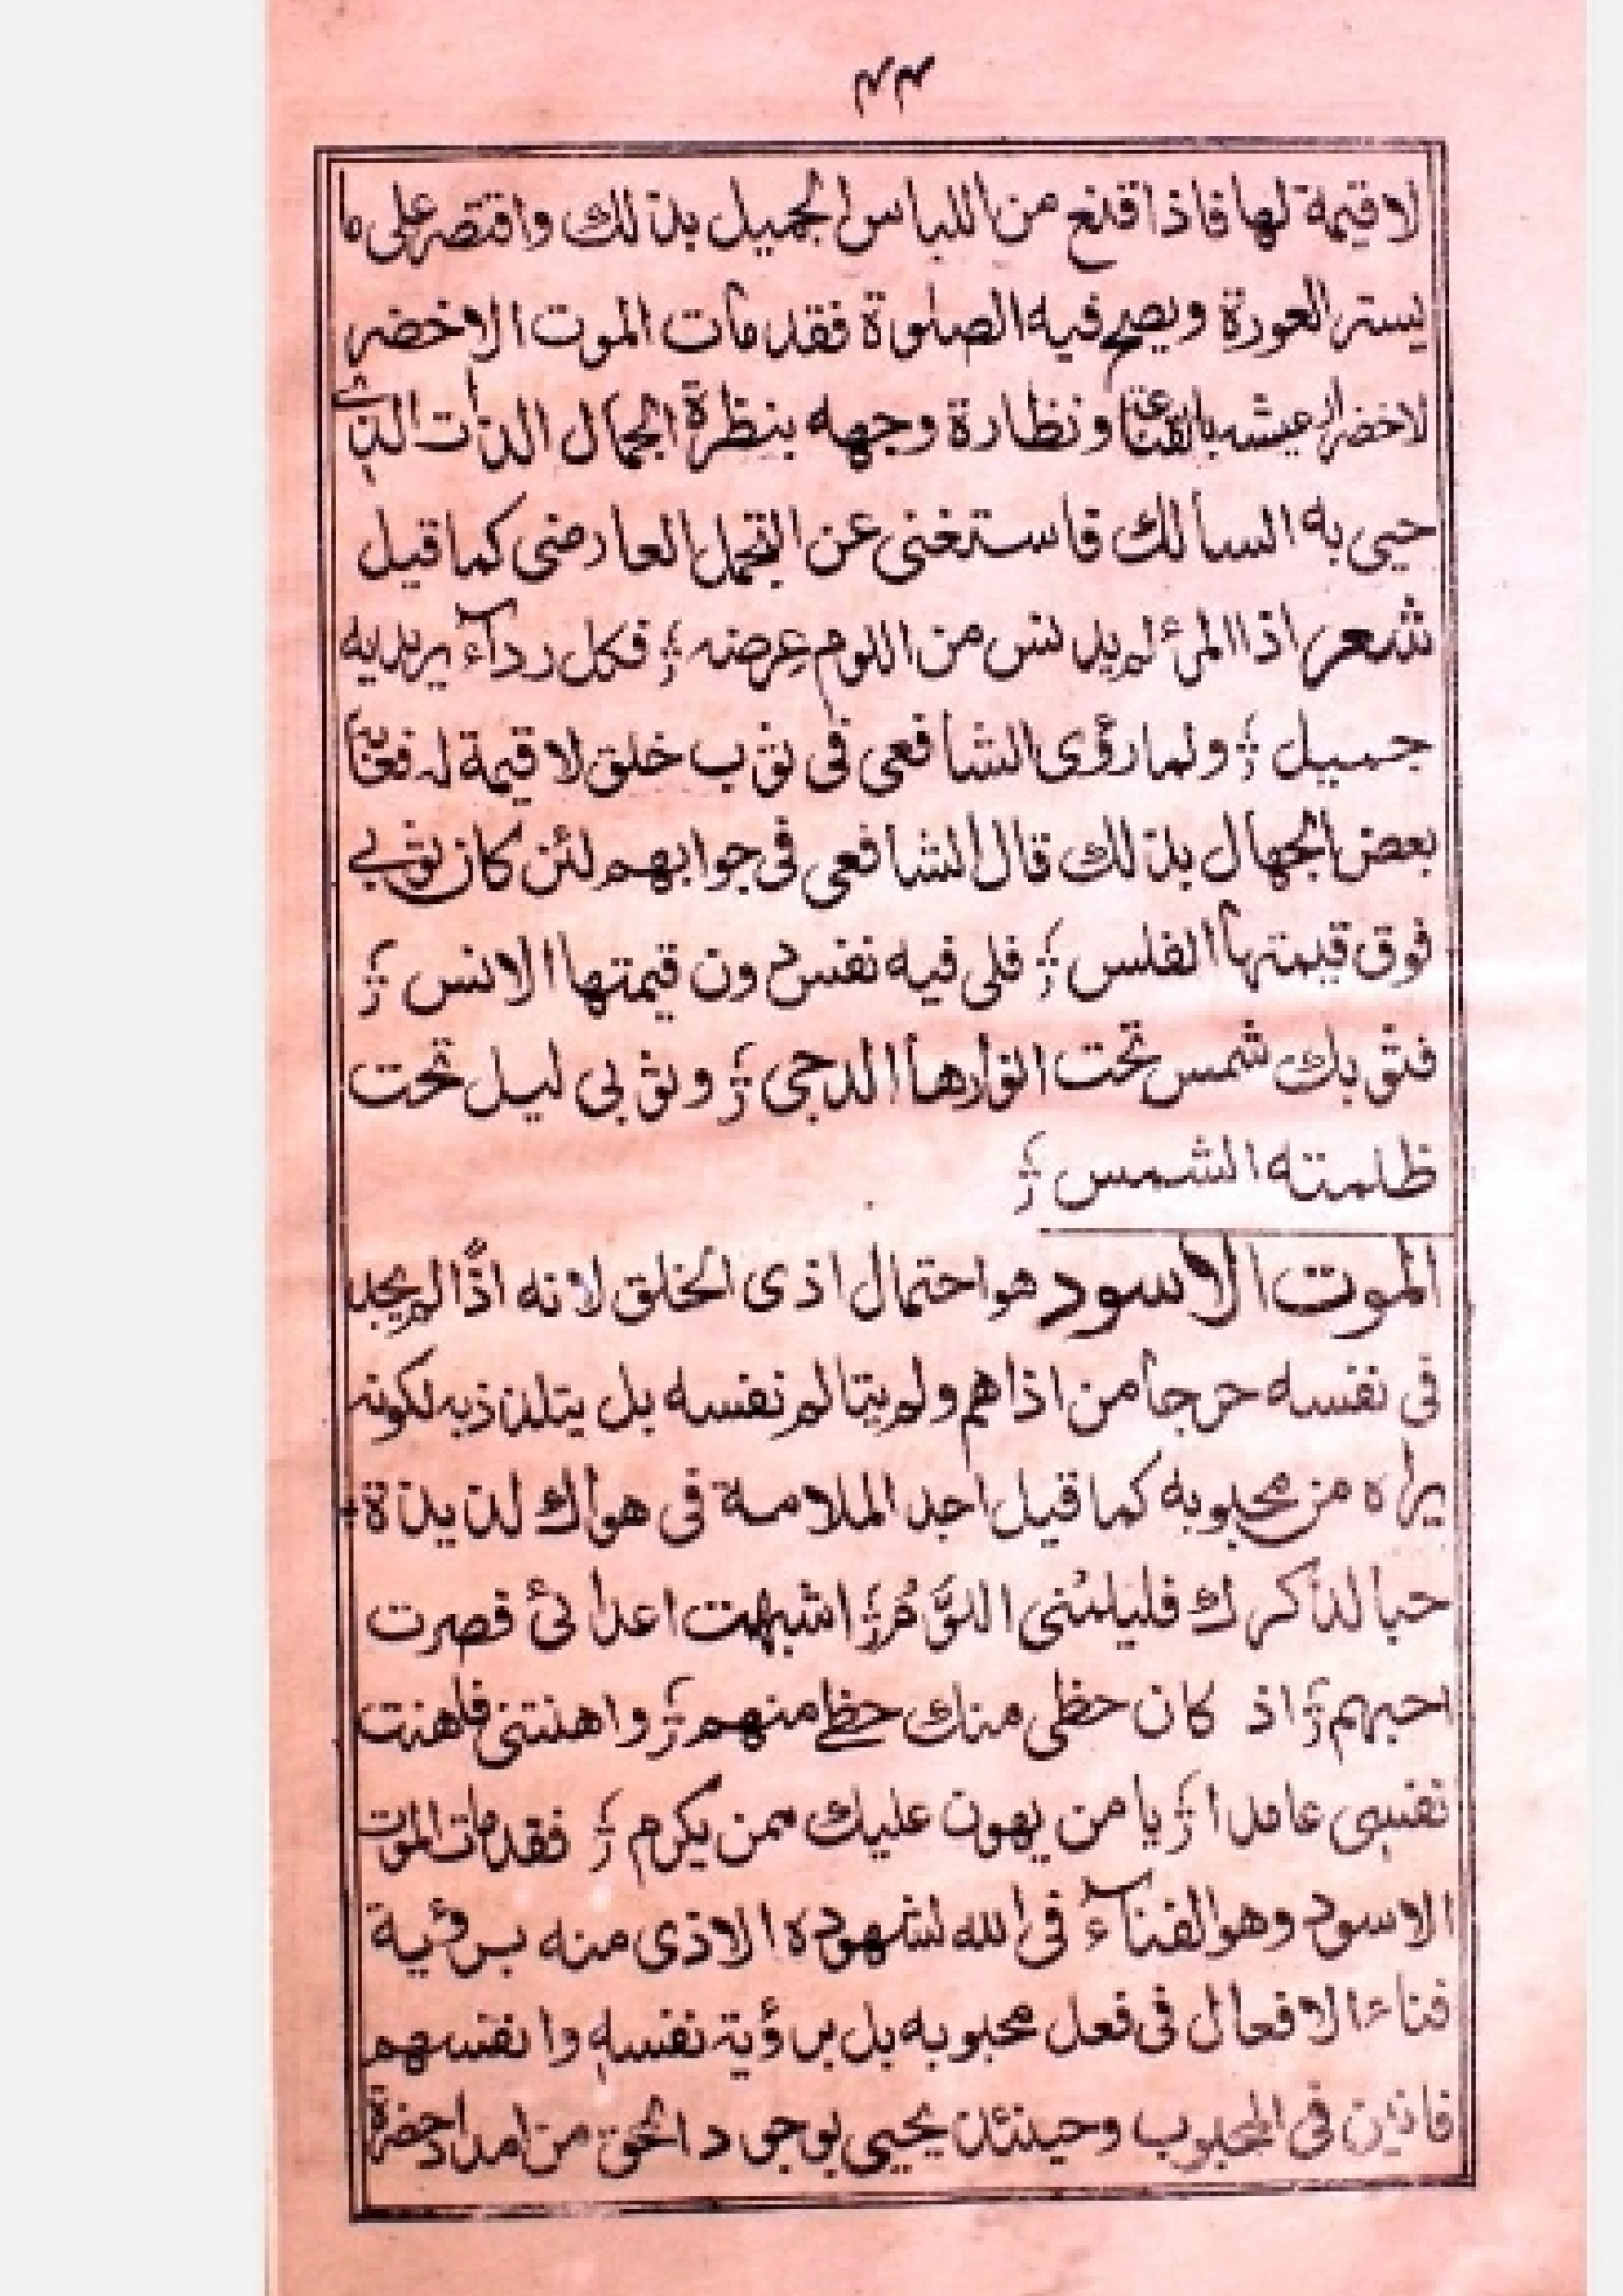 ۴۴
لا قيمة لها فاذا قنع من اللباس الجميل بذلك واقتصر على ما
يستر العورة ويصح فيه الصلوة فقد مات الموت الاخضر
لاخضرار عيشه بالقناعة ونظارة وجهه بنظرة الجمال الذات الذى
حيى به السالك فاستغنى عن التجمل العارضى كما قيل
شعر اذا المرء لم يدنس من اللوم عرضه ؛ فكل رداء يرديه
جميل ؛ ولما رؤى الشافعى فى ثوب خلق لا قيمة له فعابه
بعض الجهال بذلك قال الشافعى فى جوابهم لئن كان ثوبى
فوق قيمتها الفلس ؛ فلى فيه نفس دون قيمتها الانس ؛
فثوبك شمس تحت انوارها الدجى ؛ وثوبى ليل تحت
ظلمته الشمس ؛
الموت الاسود هو احتمال اذى الخلق لانه اذا لم يجد
فى نفسه حرجا من اذاهم ولم يتالم نفسه بل يتلذذ به لكونه
يراه من محبوبه كما قيل اجد الملامة فى هواك لذيذة ؛
حبا لذكرك فليلمنى اللوّمُ ؛ اشبهت اعدائى فصرت
احبهم ؛ اذ كان حظى منك حظى منهم ؛ واهنتنى فاهنت
نفسى عامدا ؛ يا من يهون عليك ممن يكرم ؛ فقد مات الموت
الاسود وهو الفناء فى الله لشهوده الاذى منه برؤية
فناء الافعال فى فعل محبوبه بل برؤية نفسه وانفسهم
فانين فى المحبوب وحينئذ يحيى بوجود الحق من امداد حضرة